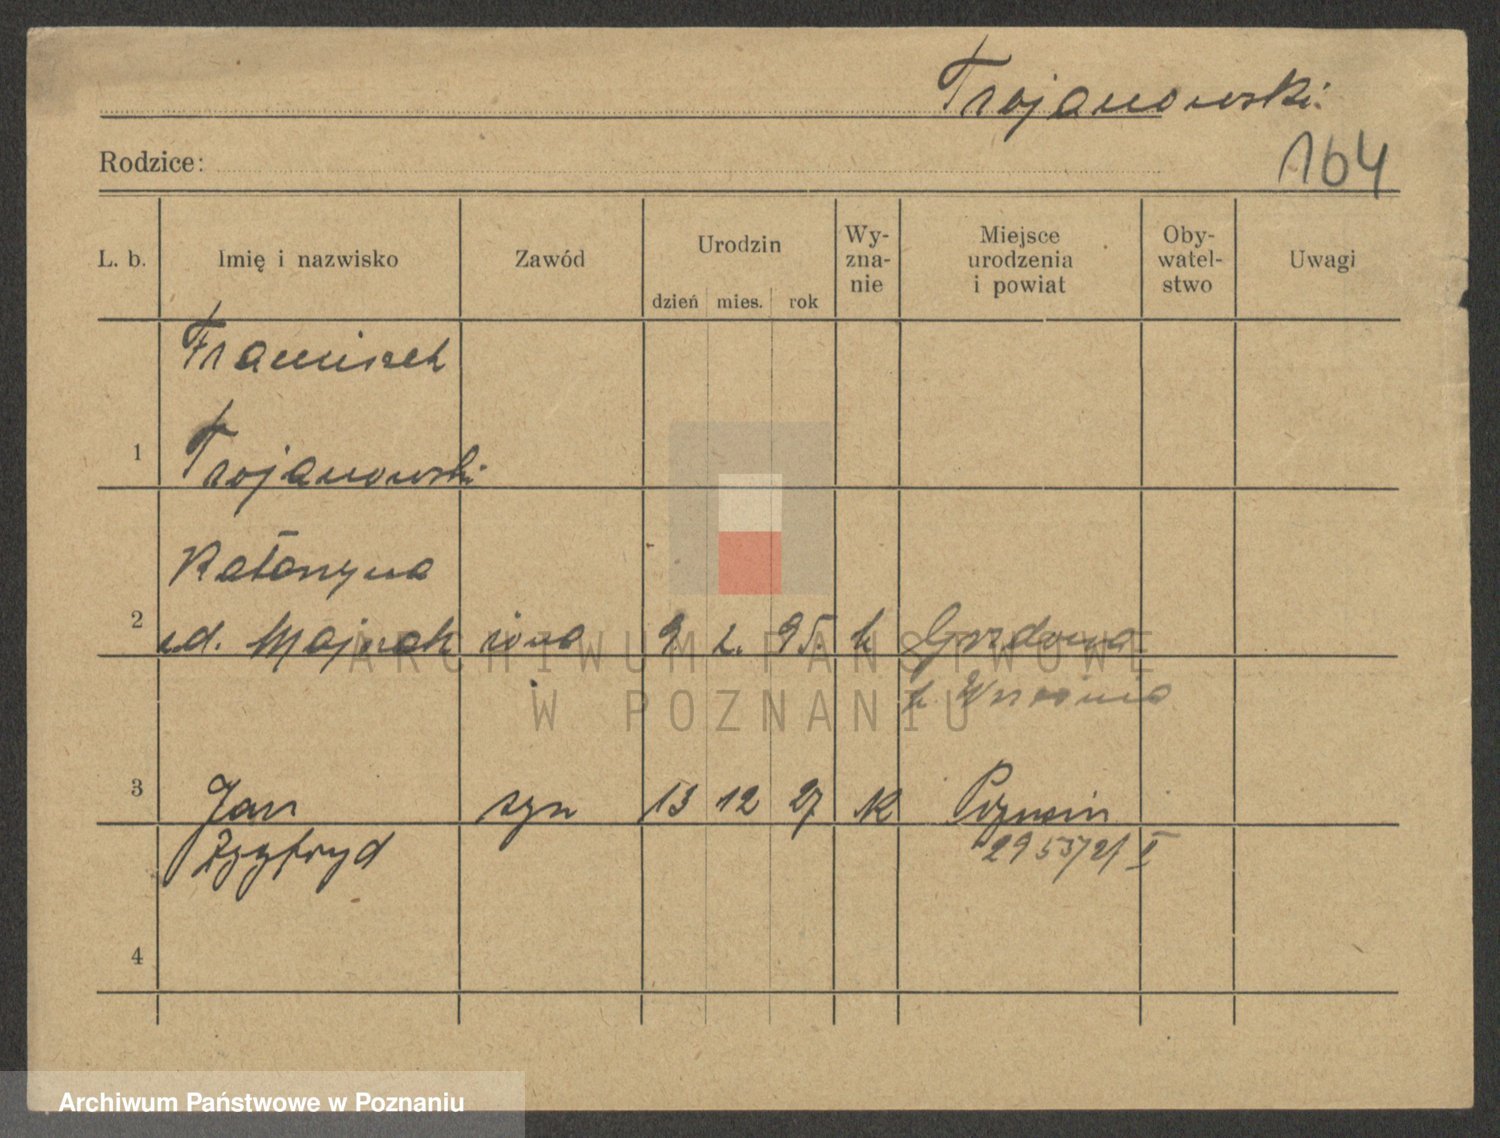 Trojanowski
164
Rodzice:
L. b. Imię i nazwisko Zawód Urodzin dzień mies. rok Wy-
zna-
nie Miejsce
urodzenia
i powiat Oby-
watel-
stwo Uwagi
Franciszek
1 Trojanowski
Katarzyna
2 zd. Majrak żona 9. 2. 95. k Gozdowo
p. Września
3 Jan syn 13 12 27 k Poznań
Zygfryd 2953/21 I
4
ARCHIWUM PAŃSTWOWE
W POZNANIU
Archiwum Państwowe w Poznaniu